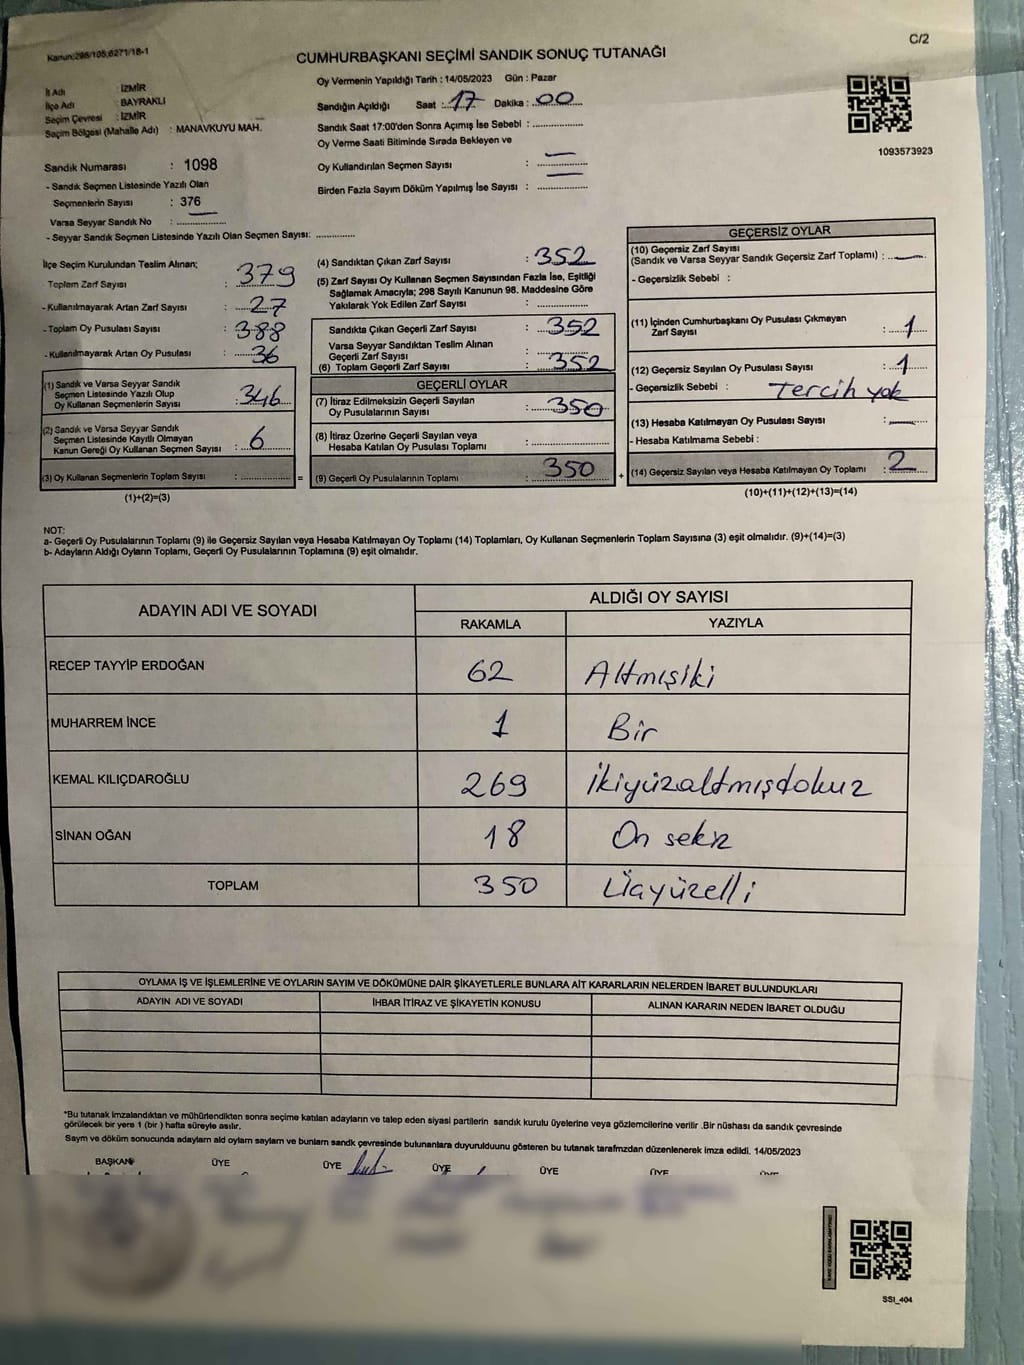 Kanun:298/105,6271/18-1
C/2
CUMHURBAŞKANI SEÇİMİ SANDIK SONUÇ TUTANAĞI
İl Adı : İZMİR
İlçe Adı : BAYRAKLI
Seçim Çevresi : İZMİR
Seçim Bölgesi (Mahalle Adı) : MANAVKUYU MAH.
Sandık Numarası : 1098
- Sandık Seçmen Listesinde Yazılı Olan
Seçmenlerin Sayısı : 376
Varsa Seyyar Sandık No : ..............
- Seyyar Sandık Seçmen Listesinde Yazılı Olan Seçmen Sayısı: ............
Oy Vermenin Yapıldığı Tarih : 14/05/2023 Gün : Pazar
Sandığın Açıldığı Saat : 17 Dakika : 00
Sandık Saat 17:00'den Sonra Açımış İse Sebebi : ..............
Oy Verme Saati Bitiminde Sırada Bekleyen ve
Oy Kullandırılan Seçmen Sayısı : —
Birden Fazla Sayım Döküm Yapılmış İse Sayısı : —
1093573923
İlçe Seçim Kurulundan Teslim Alınan;
Toplam Zarf Sayısı : 379
- Kullanılmayarak Artan Zarf Sayısı : 27
- Toplam Oy Pusulası Sayısı : 388
- Kullanılmayarak Artan Oy Pusulası : 36
(1) Sandık ve Varsa Seyyar Sandık
Seçmen Listesinde Yazılı Olup
Oy Kullanan Seçmenlerin Sayısı : 346
(2) Sandık ve Varsa Seyyar Sandık
Seçmen Listesinde Kayıtlı Olmayan
Kanun Gereği Oy Kullanan Seçmen Sayısı : 6
(3) Oy Kullanan Seçmenlerin Toplam Sayısı : ..............
(1)+(2)=(3)
(4) Sandıktan Çıkan Zarf Sayısı : 352
(5) Zarf Sayısı Oy Kullanan Seçmen Sayısından Fazla İse, Eşitliği
Sağlamak Amacıyla; 298 Sayılı Kanunun 98. Maddesine Göre
Yakılarak Yok Edilen Zarf Sayısı : ..............
Sandıkta Çıkan Geçerli Zarf Sayısı : 352
Varsa Seyyar Sandıktan Teslim Alınan
Geçerli Zarf Sayısı : ..............
(6) Toplam Geçerli Zarf Sayısı : 352
GEÇERLİ OYLAR
(7) İtiraz Edilmeksizin Geçerli Sayılan
Oy Pusulalarının Sayısı : 350
(8) İtiraz Üzerine Geçerli Sayılan veya
Hesaba Katılan Oy Pusulası Toplamı : ..............
= (9) Geçerli Oy Pusulalarının Toplamı : 350 +
GEÇERSİZ OYLAR
(10) Geçersiz Zarf Sayısı
(Sandık ve Varsa Seyyar Sandık Geçersiz Zarf Toplamı) : —
- Geçersizlik Sebebi :
(11) İçinden Cumhurbaşkanı Oy Pusulası Çıkmayan
Zarf Sayısı : 1
(12) Geçersiz Sayılan Oy Pusulası Sayısı : 1
- Geçersizlik Sebebi : Tercih yok
(13) Hesaba Katılmayan Oy Pusulası Sayısı : —
- Hesaba Katılmama Sebebi :
(14) Geçersiz Sayılan veya Hesaba Katılmayan Oy Toplamı : 2
(10)+(11)+(12)+(13)=(14)
NOT:
a- Geçerli Oy Pusulalarının Toplamı (9) ile Geçersiz Sayılan veya Hesaba Katılmayan Oy Toplamı (14) Toplamları, Oy Kullanan Seçmenlerin Toplam Sayısına (3) eşit olmalıdır. (9)+(14)=(3)
b- Adayların Aldığı Oyların Toplamı, Geçerli Oy Pusulalarının Toplamına (9) eşit olmalıdır.
ADAYIN ADI VE SOYADI ALDIĞI OY SAYISI
RAKAMLA YAZIYLA
RECEP TAYYİP ERDOĞAN 62 Altmışiki
MUHARREM İNCE 1 Bir
KEMAL KILIÇDAROĞLU 269 İkiyüzaltmışdokuz
SİNAN OĞAN 18 On sekiz
TOPLAM 350 Üçyüzelli
OYLAMA İŞ VE İŞLEMLERİNE VE OYLARIN SAYIM VE DÖKÜMÜNE DAİR ŞİKAYETLERLE BUNLARA AİT KARARLARIN NELERDEN İBARET BULUNDUKLARI
ADAYIN ADI VE SOYADI İHBAR İTİRAZ VE ŞİKAYETİN KONUSU ALINAN KARARIN NEDEN İBARET OLDUĞU
*Bu tutanak imzalandıktan ve mühürlendikten sonra seçime katılan adayların ve talep eden siyasi partilerin sandık kurulu üyelerine veya gözlemcilerine verilir .Bir nüshası da sandık çevresinde
görülecek bir yere 1 (bir ) hafta süreyle asılır.
Sayım ve döküm sonucunda adayların ald oyların sayların ve bunların sandk çevresinde bulunanlara duyurulduunu gösteren bu tutanak tarafmzdan düzenlenerek imza edildi. 14/05/2023
BAŞKAN ÜYE ÜYE ÜYE ÜYE ÜYE ÜYE
SSI_404